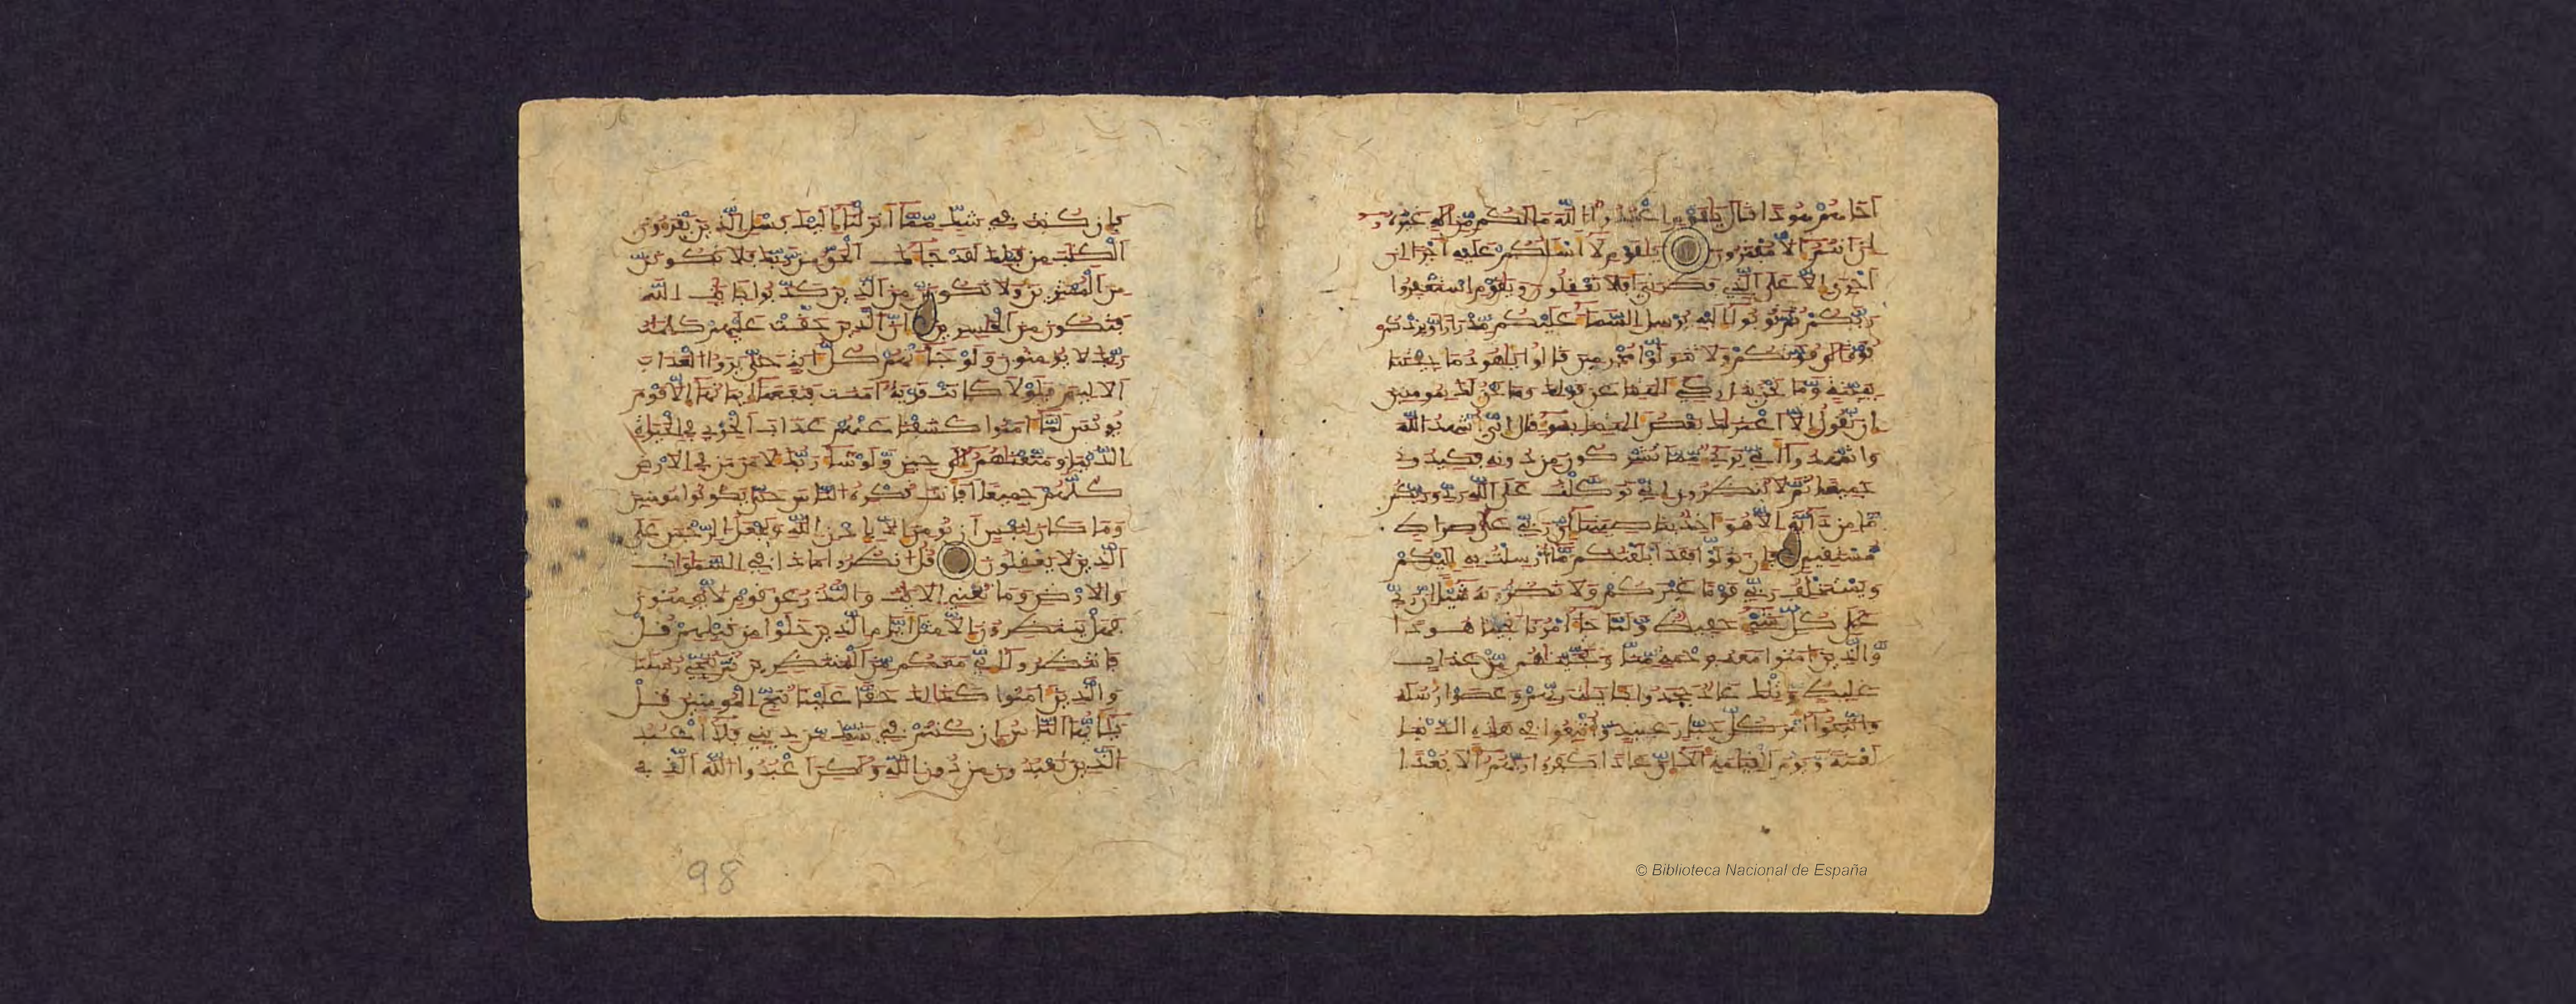 اخاهم هودا قال يا قوم اعبدوا الله ما لكم من اله غيره
ان انتم الا مفترون يقوم لا اسلكم عليه اجرا ان
اجري الا على الذي فطرني افلا تعقلون ويقوم استغفروا
ربكم ثم توبوا اليه يرسل السما عليكم مدرارا ويزدكم
قوة الى قوتكم ولا تتولوا مجرمين قالوا يهود ما جئتنا
ببينة وما نحن بتاركي الهتنا عن قولك وما نحن لك بمومنين
ان نقول الا اعتراك بعض الهتنا بسو قال اني اشهد الله
واشهدوا اني بري مما تشركون من دونه فكيدوني
جميعا ثم لا تنظرون اني توكلت على الله ربي وربكم
ما من دابة الا هو اخذ بناصيتها ان ربي على صراط
مستقيم فان تولوا فقد ابلغتكم ما ارسلت به اليكم
ويستخلف ربي قوما غيركم ولا تضرونه شيا ان ربي
على كل شي حفيظ ولما جا امرنا نجينا هودا
والذين امنوا معه برحمة منا ونجيناهم من عذاب
غليظ وتلك عاد جحدوا بايت ربهم وعصوا رسله
واتبعوا امر كل جبار عنيد واتبعوا في هذه الدنيا
لعنة ويوم القيمة الا ان عادا كفروا ربهم الا بعدا
فان كنت في شك مما انزلنا اليك فسل الذين يقرون
الكتب من قبلك لقد جاك الحق من ربك فلا تكونن
من الممترين ولا تكونن من الذين كذبوا بايت الله
فتكون من الخسرين ان الذين حقت عليهم كلمات
ربك لا يومنون ولو جاتهم كل اية حتى يروا العذاب
الاليم فلولا كانت قرية امنت فنفعها ايمانها الا قوم
يونس لما امنوا كشفنا عنهم عذاب الخزي في الحيوة
الدنيا ومتعناهم الى حين ولو شا ربك لامن من في الارض
كلهم جميعا افانت تكره الناس حتى يكونوا مومنين
وما كان لنفس ان تومن الا باذن الله ويجعل الرجس على
الذين لا يعقلون قل انظروا ماذا في السموات
والارض وما تغني الايت والنذر عن قوم لا يومنون
فهل ينتظرون الا مثل ايام الذين خلوا من قبلهم قل
فانتظروا اني معكم من المنتظرين ثم ننجي رسلنا
والذين امنوا كذالك حقا علينا ننج المومنين قل
يايها الناس ان كنتم في شك من ديني فلا اعبد
الذين تعبدون من دون الله ولكن اعبدوا الله الذي
98
© Biblioteca Nacional de España